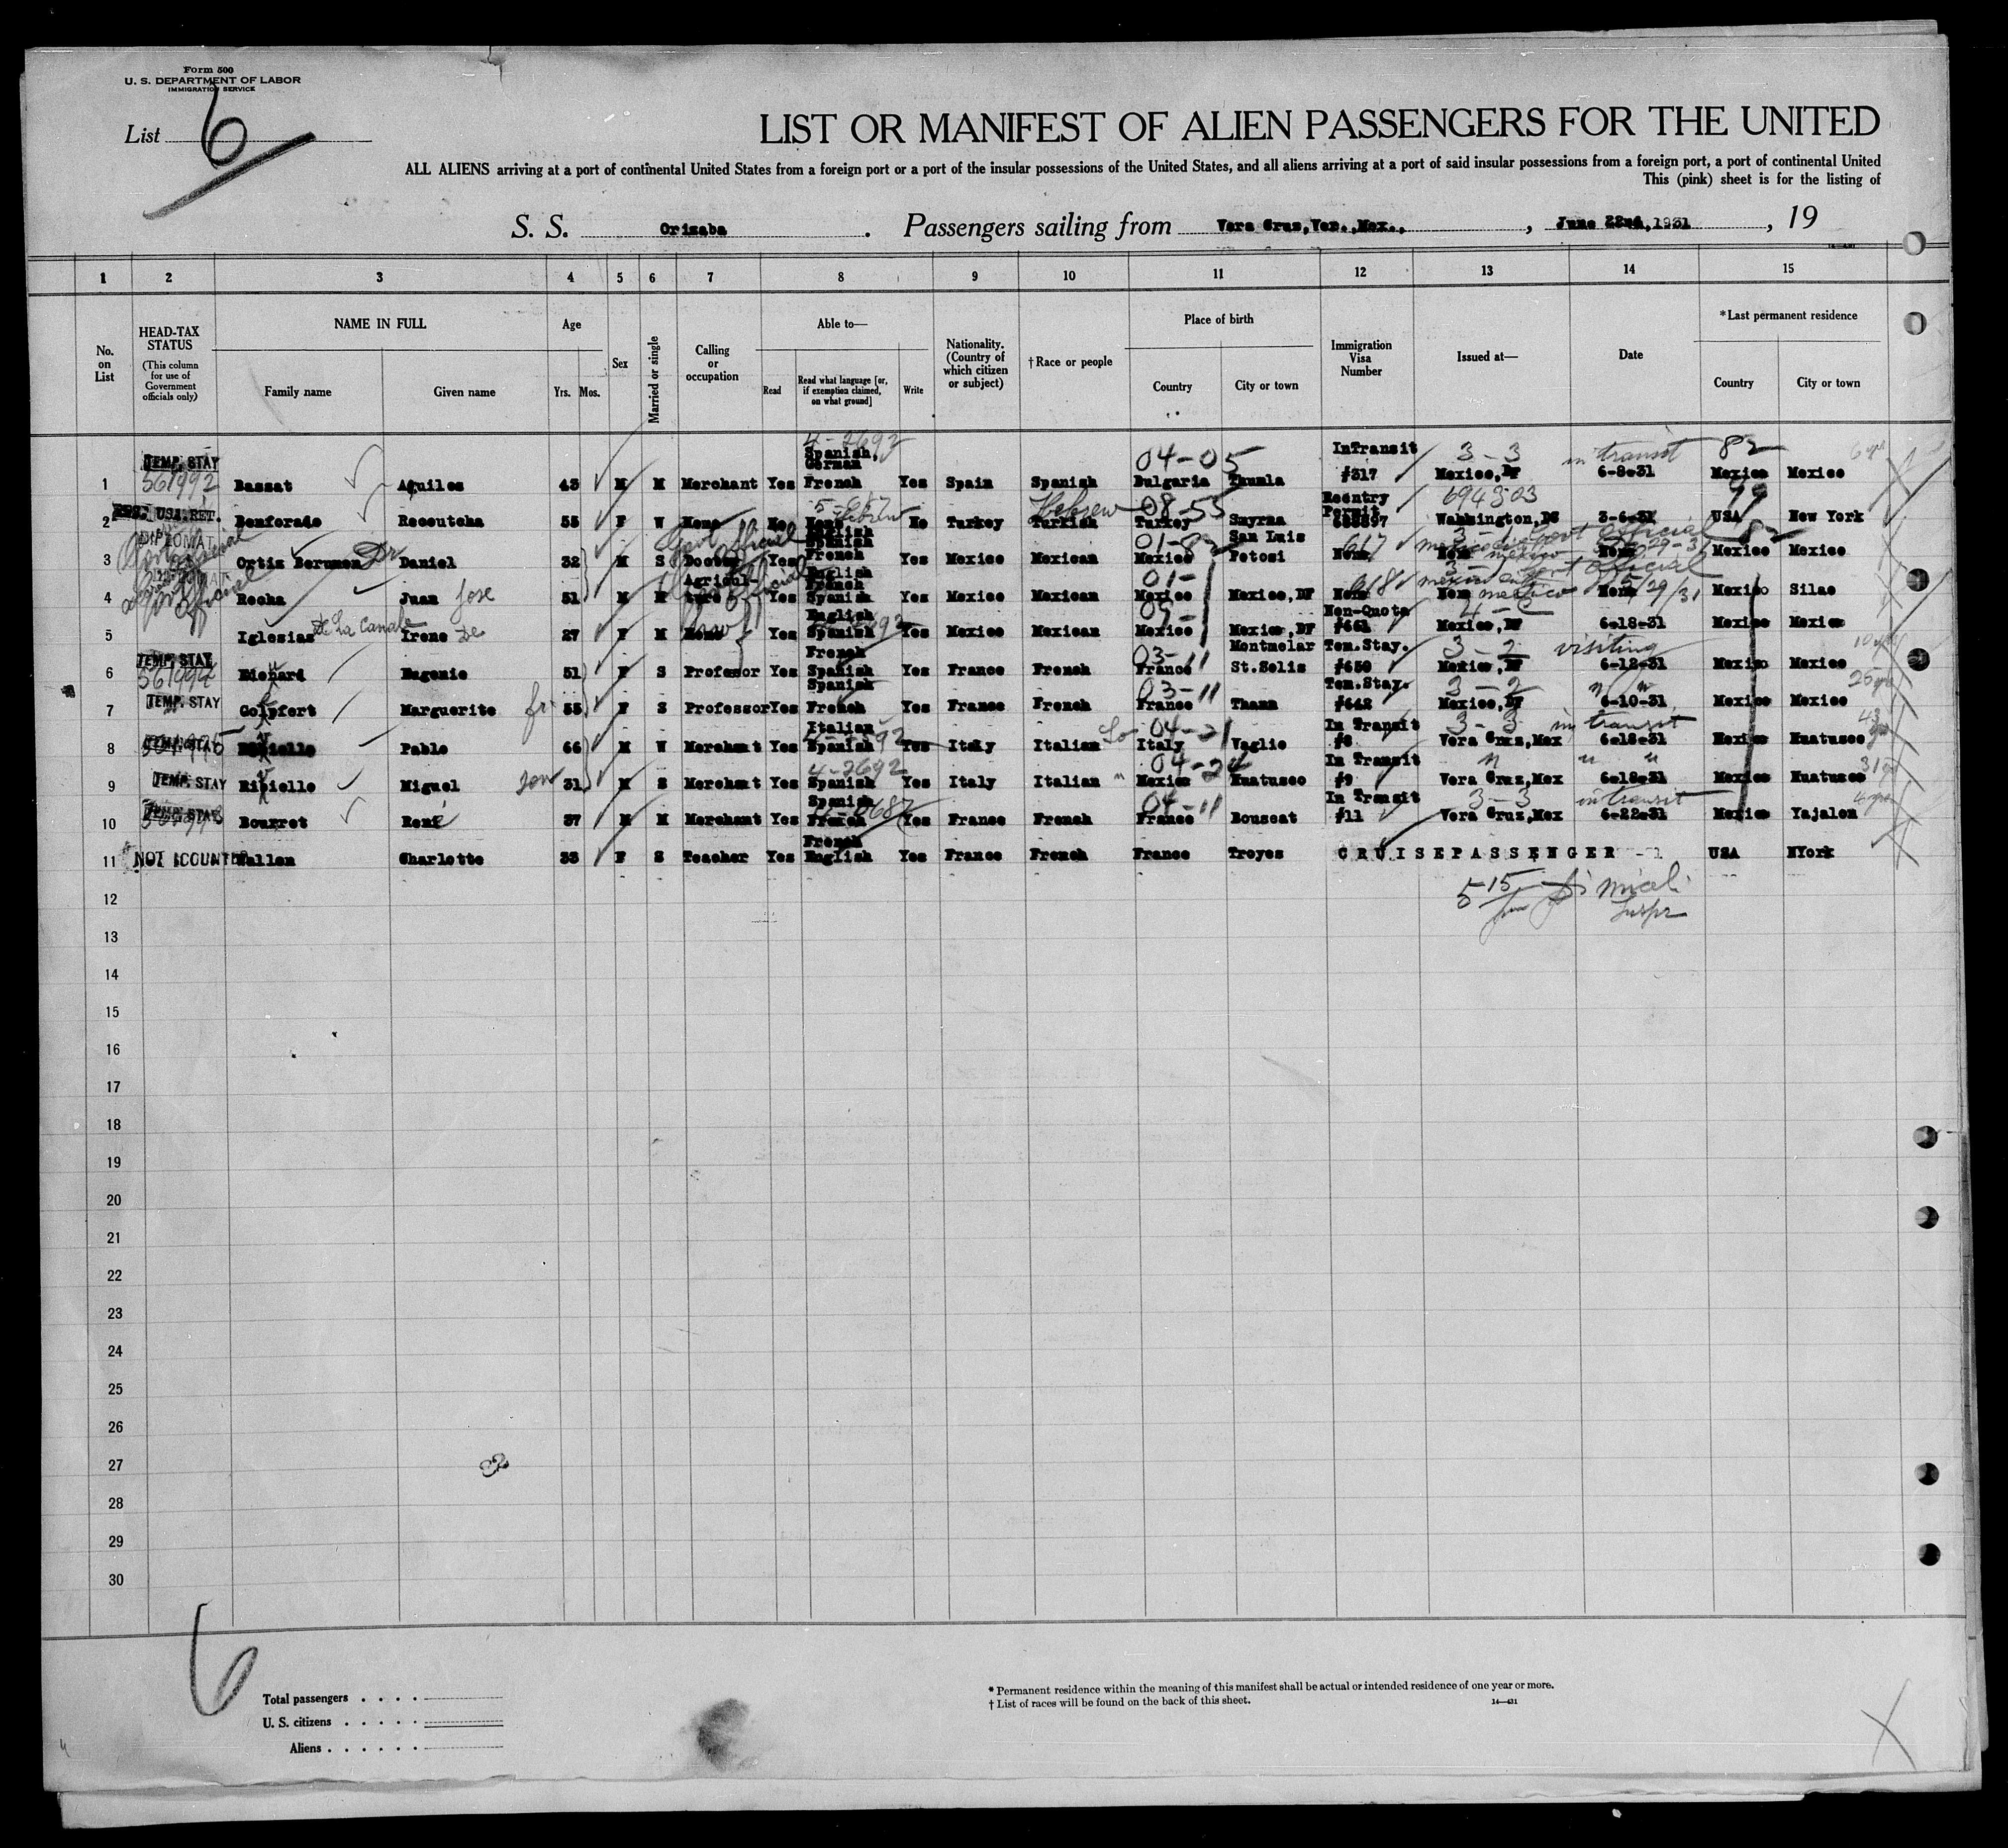 Form 500
U. S. DEPARTMENT OF LABOR
IMMIGRATION SERVICE
List 6
LIST OR MANIFEST OF ALIEN PASSENGERS FOR THE UNITED
ALL ALIENS arriving at a port of continental United States from a foreign port or a port of the insular possessions of the United States, and all aliens arriving at a port of said insular possessions from a foreign port, a port of continental United
This (pink) sheet is for the listing of
S. S. Orizaba. Passengers sailing from Vera Cruz, Ver., Mex., , June 22nd, 1931, 19
1 2 3 4 5 6 7 8 9 10 11 12 13 14 15
No. on List
HEAD-TAX STATUS (This column for use of Government officials only)
NAME IN FULL
Family name Given name
Age Yrs. Mos.
Sex
Married or single
Calling or occupation
Able to—
Read Read what language [or, if exemption claimed, on what ground] Write
Nationality. (Country of which citizen or subject)
† Race or people
Place of birth
Country City or town
Immigration Visa Number
Issued at—
Date
* Last permanent residence
Country City or town
1 TEMP. STAY 561992 Bassat Aquiles 43 M M Merchant Yes Spanish, German French 4-2692 Yes Spain Spanish 04-05 Bulgaria InTransit #317 3-3 Mexico, DF in transit 6-8-31 82 Mexico Mexico
2 USA. RET. Benforado 55 F W None No None Hebrew No Turkey Turkish Hebrew 08-55 Turkey Smyrna Reentry Permit 694303 Washington, DC 3-6-31 99 USA New York
3 DIPLOMAT Ortiz Berumen Dr Daniel 32 M S Doctor Govt Official Yes English Spanish French Yes Mexico Mexican 01- Mexico San Luis Potosi None 617 Mexico Govt Official Mexico Mexico
4 Rocha Juan Jose 51 M M Agriculture Yes English French Spanish Yes Mexico Mexican 01- Mexico Mexico, DF None 618 None Mexico Govt Official 5/29/31 Mexico Silao
5 Iglesias De La Canal Irene De 27 F M None Yes English Spanish Yes Mexico Mexican Mexico Mexico, DF Non-Quota #661 Mexico, DF 6-18-31 Mexico Mexico
6 TEMP. STAY 561994 Eugenie 51 F S Professor Yes French Spanish Yes France French 03-11 France Montmelar St. Solis Tem. Stay. #650 3-2 Mexico, DF visiting 6-12-31 Mexico Mexico
7 TEMP. STAY Marguerite 55 F S Professor Yes Spanish French Yes France French 03-11 France Thann Tem. Stay. #642 3-2 Mexico, DF 6-10-31 Mexico Mexico
8 TEMP. STAY Pablo 66 M W Merchant Yes Italian Spanish Yes Italy Italian So 04-21 Italy Vaglio In Transit #8 3-3 Vera Cruz, Mex in transit 6-18-31 Mexico Huatusco
9 TEMP. STAY Miguel son 31 M S Merchant Yes 4-2692 Spanish Yes Italy Italian " 04-24 Mexico Huatusco In Transit #9 " Vera Cruz, Mex " " 6-18-31 Mexico Huatusco
10 TEMP. STAY Bouxret René 37 M M Merchant Yes Spanish French Yes France French 04-11 France Bouscat In Transit #11 3-3 Vera Cruz, Mex in transit 6-22-31 Mexico Yajalon
11 NOT Charlotte 33 F S Teacher Yes French English Yes France French France Troyes CRUISE PASSENGER USA NYork
12 5 15
13
14
15
16
17
18
19
20
21
22
23
24
25
26
27
28
29
30
6
Total passengers
U. S. citizens
Aliens
* Permanent residence within the meaning of this manifest shall be actual or intended residence of one year or more.
† List of races will be found on the back of this sheet.
14—431